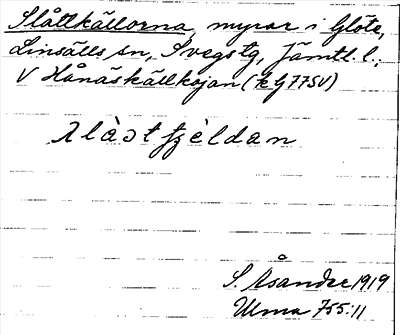 Slåttkällorna, myrar i Glöte,
Linsälls sn, Svegs tg, Jämtl. l.;
V Hånäskällkojan (kg 77SV)
slàɔtfjèldan
S. Åsander 1919
Ulma 755:11